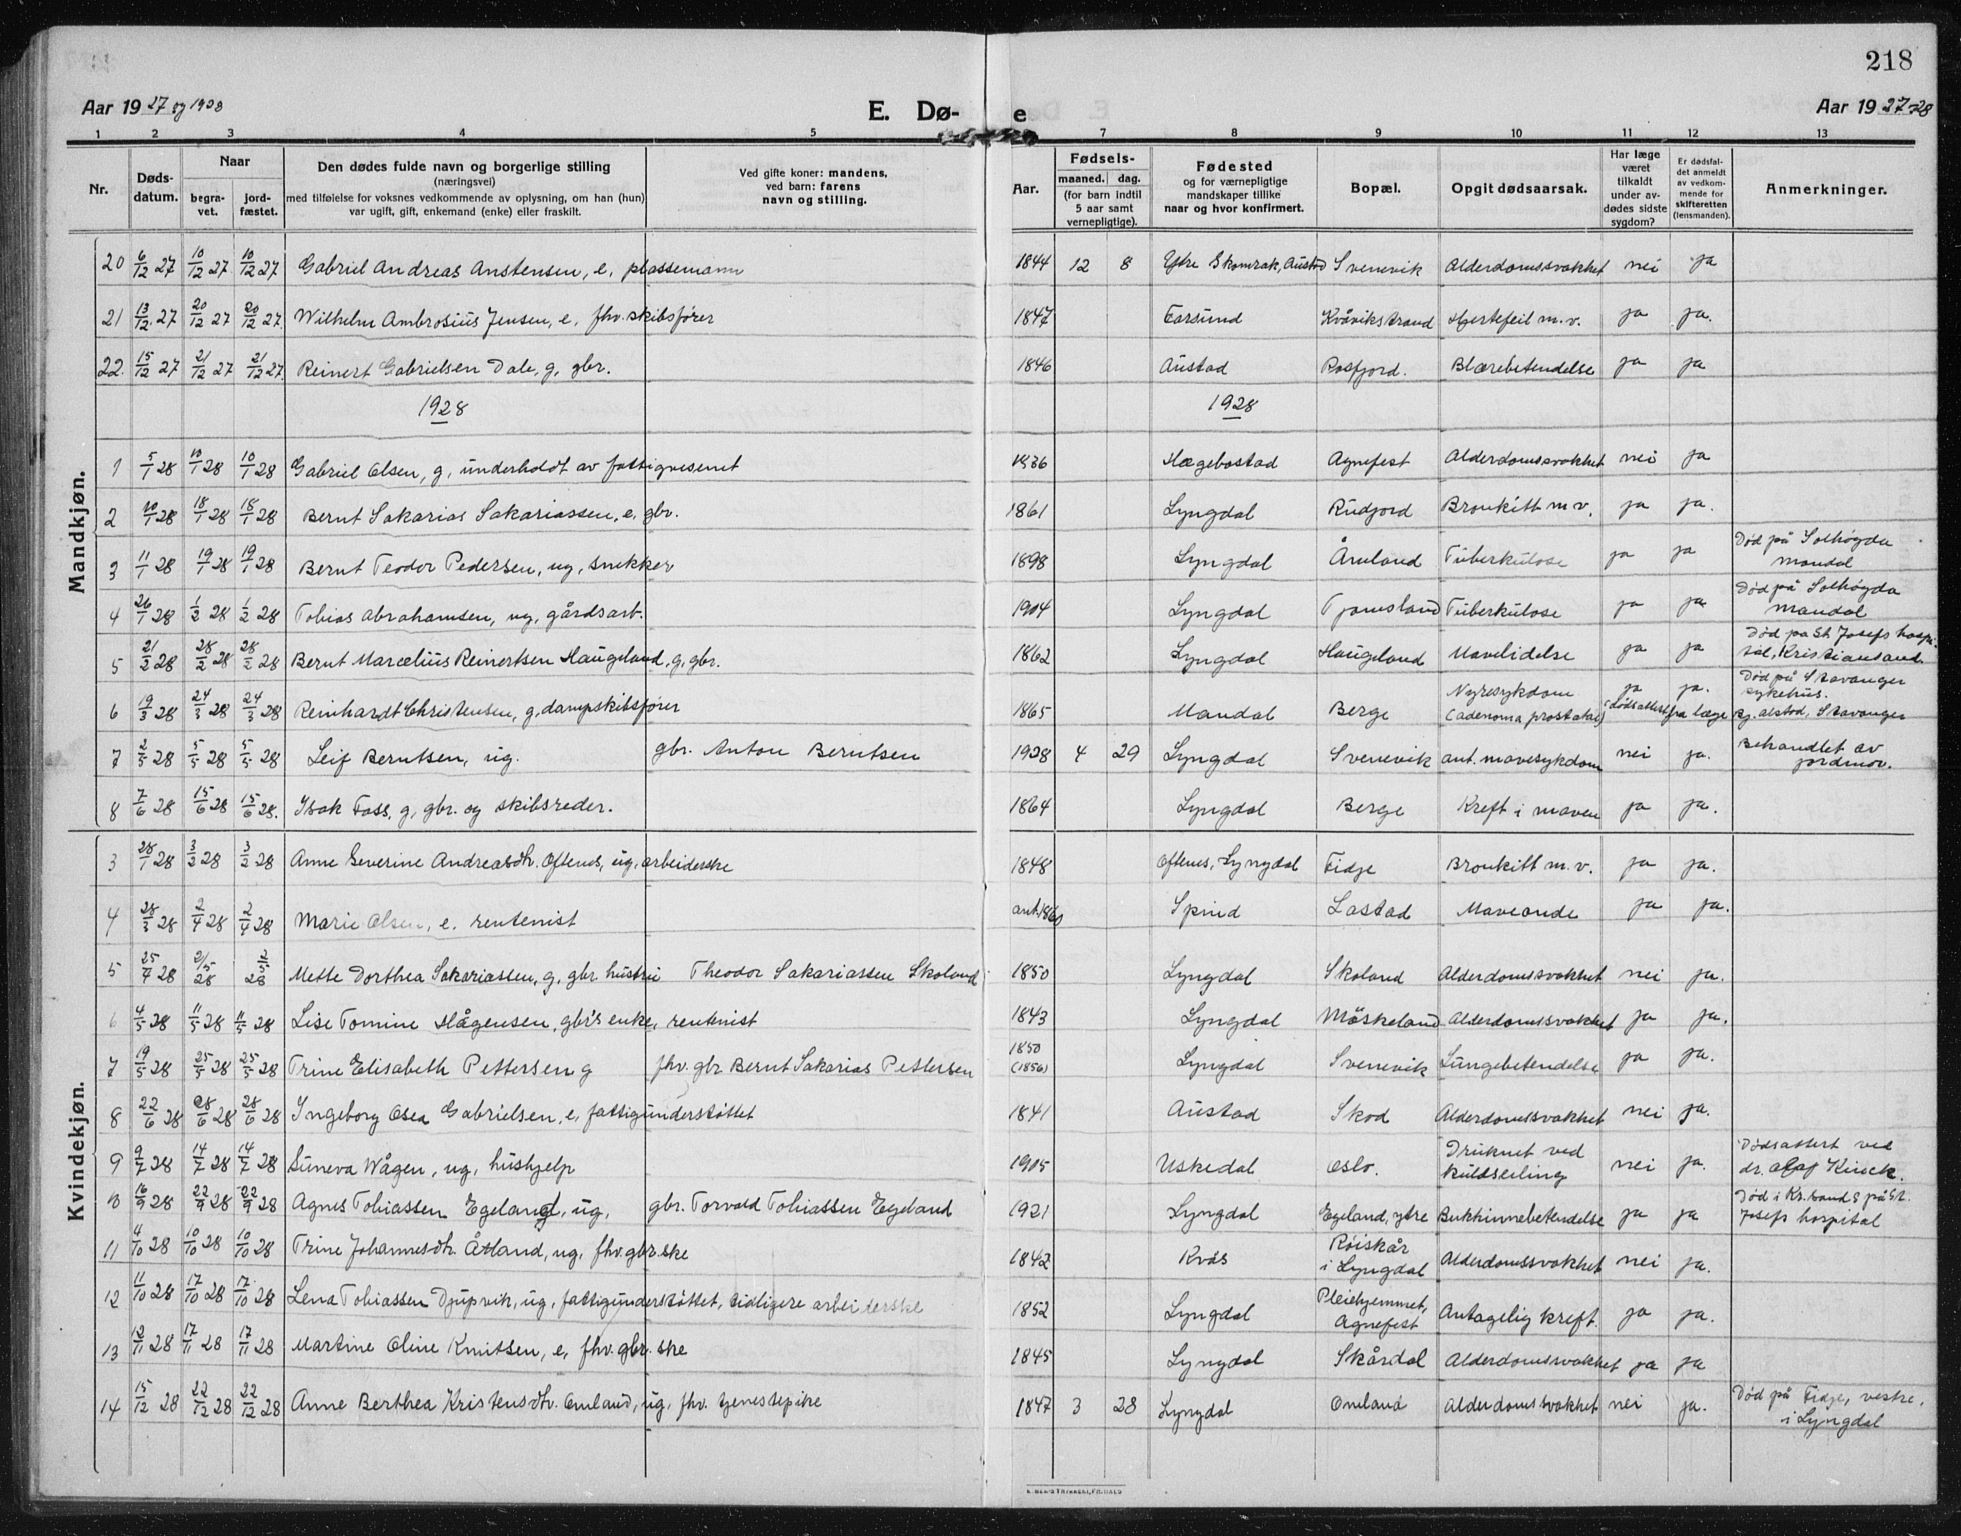 218
Aar 19 27 og 1928 E. Dø- e Aar 19 27-28
1 2 3 4 5 7 8 9 10 11 12 13
Nr. Døds-datum. Naar begra-vet. jord-fæstet. Den dødes fulde navn og borgerlige stilling (næringsvei) med tilføielse for voksnes vedkommende av oplysning, om han (hun) var ugift, gift, enkemand (enke) eller fraskilt. Ved gifte koner: mandens, ved barn: farens navn og stilling. Aar. Fødsels- maaned. dag. (for barn indtil 5 aar samt vernepligtige). Fødested og for værnepligtige mandskaper tillike naar og hvor konfirmert. Bopæl. Opgit dødsaarsak. Har læge været tilkaldt under av-dødes sidste sygdom? Er dødsfal-det anmeldt av vedkom-mende for skifteretten (lensmanden). Anmerkninger.
Mandkjøn.
20 6/12 27 10/12 27 10/12 27 Gabriel Andreas Anstensen, e, plassemann 1844 12 8 Ytre Skomrak, Austad Svenevik Alderdomssvakhet nei ja
21 13/12 27 20/12 27 20/12 27. Wilhelm Ambrosius Jensen, e, fhv. skibsfører 1847 Farsund Kvåvikstrand Hjertefeil m.v. ja ja.
22. 15/12 27 21/12 27 21/12 27. Reinert Gabrielsen Dale, g, gbr. 1846 Austad Rosfjord. Blærebetendelse ja ja
1928 1928
1 5/1 28 10/1 28 10/1 28 Gabriel Olsen, g, underholdt av fattigvesenet 1836 Hægebostad Agnefest Alderdomssvakhet nei ja
2 10/1 28 18/1 28 18/1 28 Bernt Sakarias Sakariassen, e, gbr. 1861 Lyngdal Rudjord Bronkitt m.v. ja ja.
3 11/1 28 19/1 28 19/1 28 Bernt Teodor Pedersen, ug, snekker 1898 Lyngdal Åmland Tuberkulose ja ja Død på Solhøgda Mandal
4 26/1 28 1/2 28 1/2 28 Tobias Abrahamsen, ug, gårdsarb. 1904 Lyngdal Tjomsland Tuberkulose ja ja Død på Solhøgda Mandal
5 21/2 28 28/2 28 28/2 28 Bernt Marcelius Reinertsen Haugeland, g, gbr. 1862 Lyngdal Haugeland Mavelidelse ja ja Død pa St. Josefs hospi-tal, Kristiansand.
6 19/3 28 24/3 28 24/3 28 Reinhardt Christensen, g, dampskibsfører 1865 Mandal Berge Nyresykdom (adenoma prostatae) ja (dødsattest ja. fra læge Død på Stavanger sykehus. Bj. Alstad, Stavanger
7 2/5 28 5/5 28 5/5 28 Leif Berntsen, ug. gbr. Anton Berntsen 1928 4 29 Lyngdal Svenevik ant. mavesykdom nei ja. Behandlet av jordmor.
8 7/6 28 15/6 28 15/6 28. Isak Foss, g, gbr. og skibsreder. 1864 Lyngdal Berge Kreft i maven ja ja.
Kvindekjøn.
3 28/1 28 3/2 28 3/2 28 Anne Severine Andreasdtr. Oftenes, ug, arbeiderske 1848 Oftenes, Lyngdal Fidje Bronkitt m.v. ja ja.
4 28/3 28 2/4 28 2/4 28 Marie Olsen, e. rentenist ant. 1860 Spind Lastad Maveonde ja ja.
5 25/4 28 2/5 28 2/5 28 Mette Dorthea Sakariassen, g, gbr hustru Theodor Sakariassen Skoland 1850 Lyngdal Skoland Alderdomssvakhet nei ja.
6 4/5 28 11/5 28 11/5 28 Lise Tomine Hågensen, gbr's enke, rentenist 1843 Lyngdal Møskeland Alderdomssvakhet ja ja.
7 19/5 28 25/5 28 25/5 28 Trine Elisabeth Pettersen g fhv. gbr. Bernt Sakarias Pettersen 1850 (1856) Lyngdal Svenevik Lungebetendelse ja ja.
8 22/6 28 28/6 28 28/6 28 Ingeborg Osea Gabrielsen, e, fattigunderstøttet 1841 Austad Skod Alderdomssvakhet nei ja.
9 9/7 28 14/7 28 14/7 28 Suneva Wågen, ug, hushjelp 1905 Uskedal Oslo. Druknet ved kuldseiling nei ja. Dødsattest ved dr. Olaf
10 16/9 28 22/9 28 22/9 28 Agnes Tobiassen Egeland, ug, gbr. Torvald Tobiassen Egeland 1921 Lyngdal Egeland, ytre Bukhinnebetendelse ja ja Død i Kr.sand S på St. Josefs hospital
11 4/10 28 10/10 28 10/10 28 Trine Johannesdtr. Åtland, ug, fhv. gbr.ske 1842 Kvås Røiskår i Lyngdal Alderdomssvakhet nei ja.
12 11/10 28 17/10 28 17/10 28 Lena Tobiassen Djupvik, ug, fattigunderstøttet, tidligere arbeiderske 1852 Lyngdal Pleiehjemmet, Agnefest Antagelig kreft. ja ja.
13 12/11 28 17/11 28 17/11 28 Martine Oline Knutsen, e, fhv. gbr.ske 1845 Lyngdal Skårdal Alderdomssvakhet ja ja
14 15/12 28 22/12 28 22/12 28 Anne Berthea Kristensdtr. Omland, ug, fhv. tjenestepike 1847 3 28 Lyngdal Omland Alderdomssvakhet nei ja. Død på Fidje, vestre, i Lyngdal